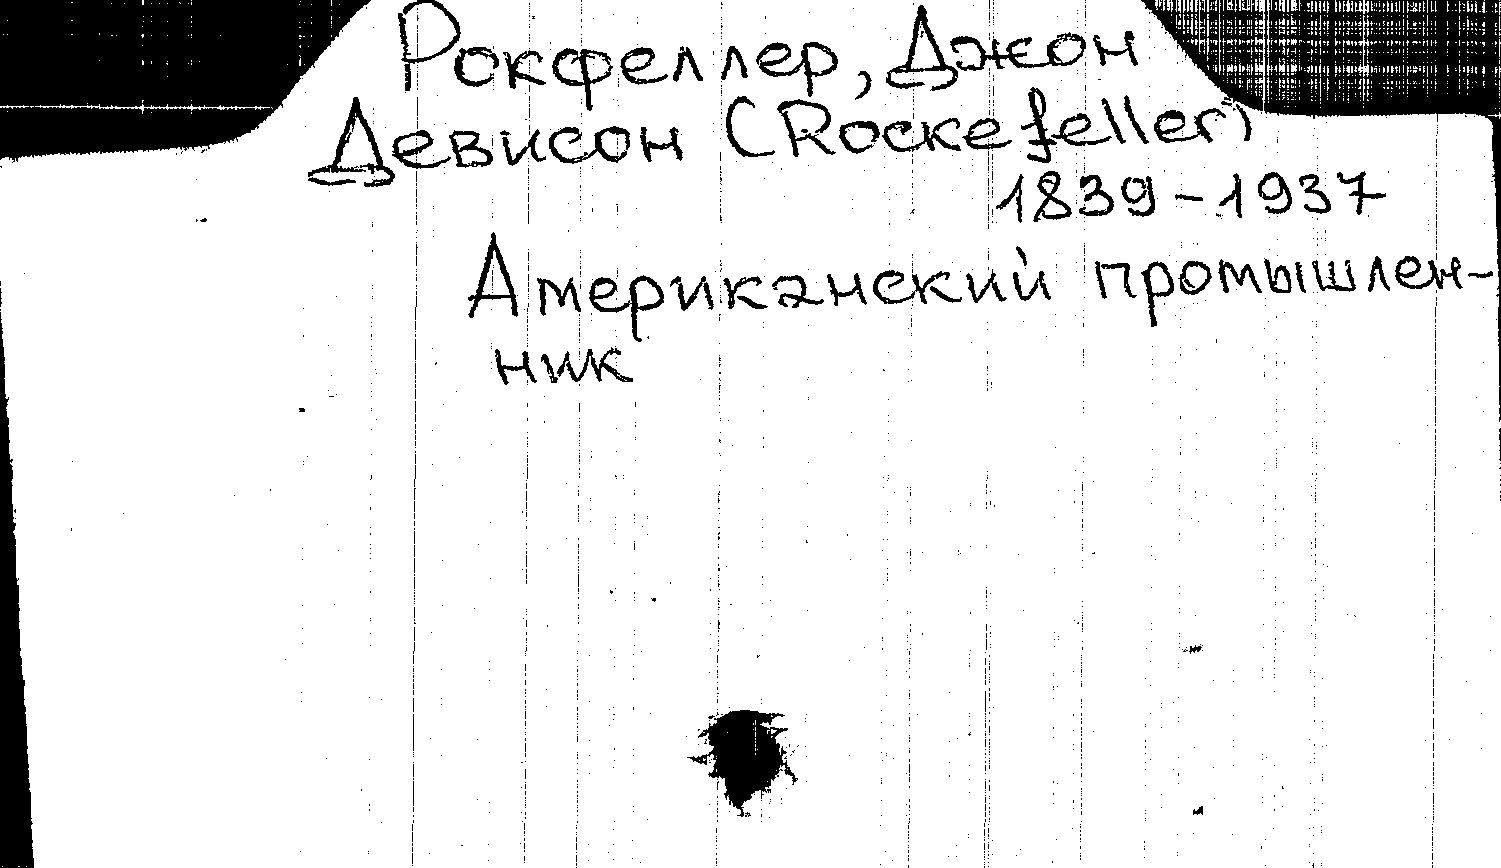 Рокфеллер, Джон
Девисон (Rockefeller)
1839-1937
Американский промышлен-
ник